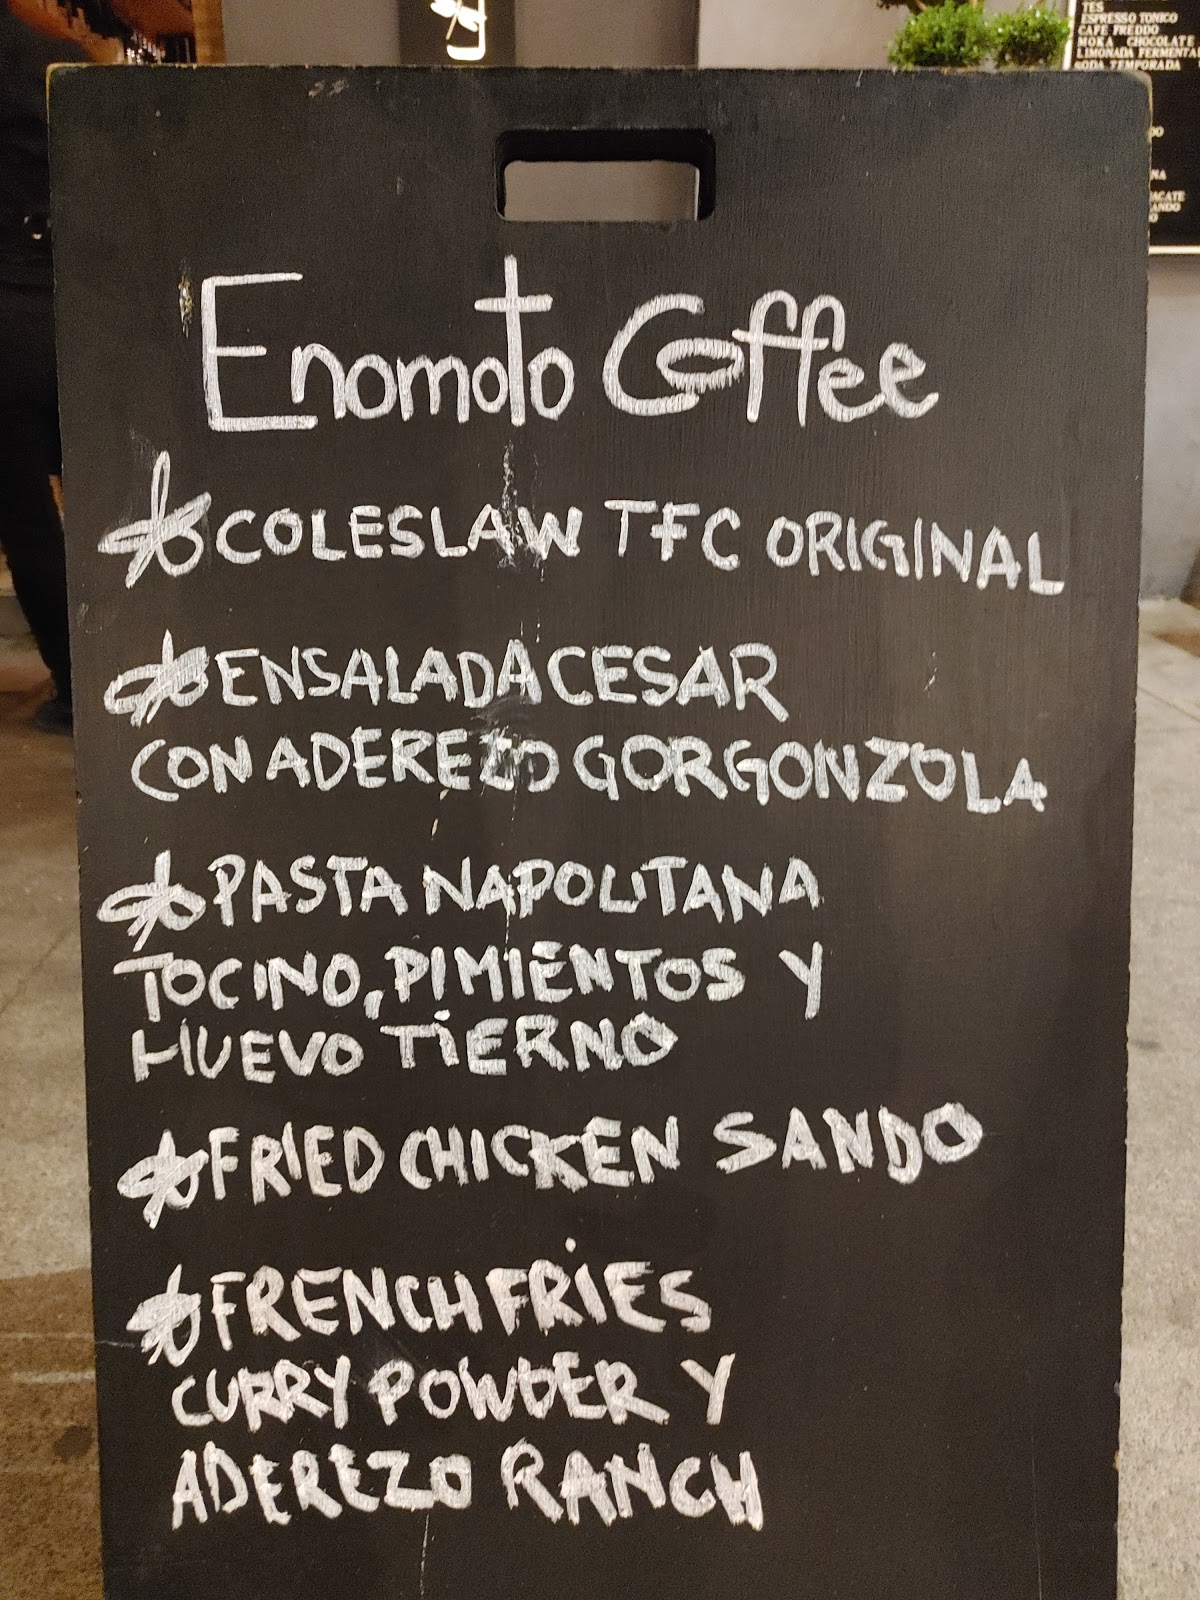 TES
ESPRESSO TONICO
CAFE FREDDO
MOKA CHOCOLATE
LIMONADA FERMENTA
SODA TEMPORADA
Enomoto Coffee
COLESLAW TFC ORIGINAL
ENSALADA CESAR
CON ADEREZO GORGONZOLA
PASTA NAPOLITANA
TOCINO, PIMIENTOS Y
HUEVO TIERNO
FRIED CHICKEN SANDO
FRENCH FRIES
CURRY POWDER Y
ADEREZO RANCH